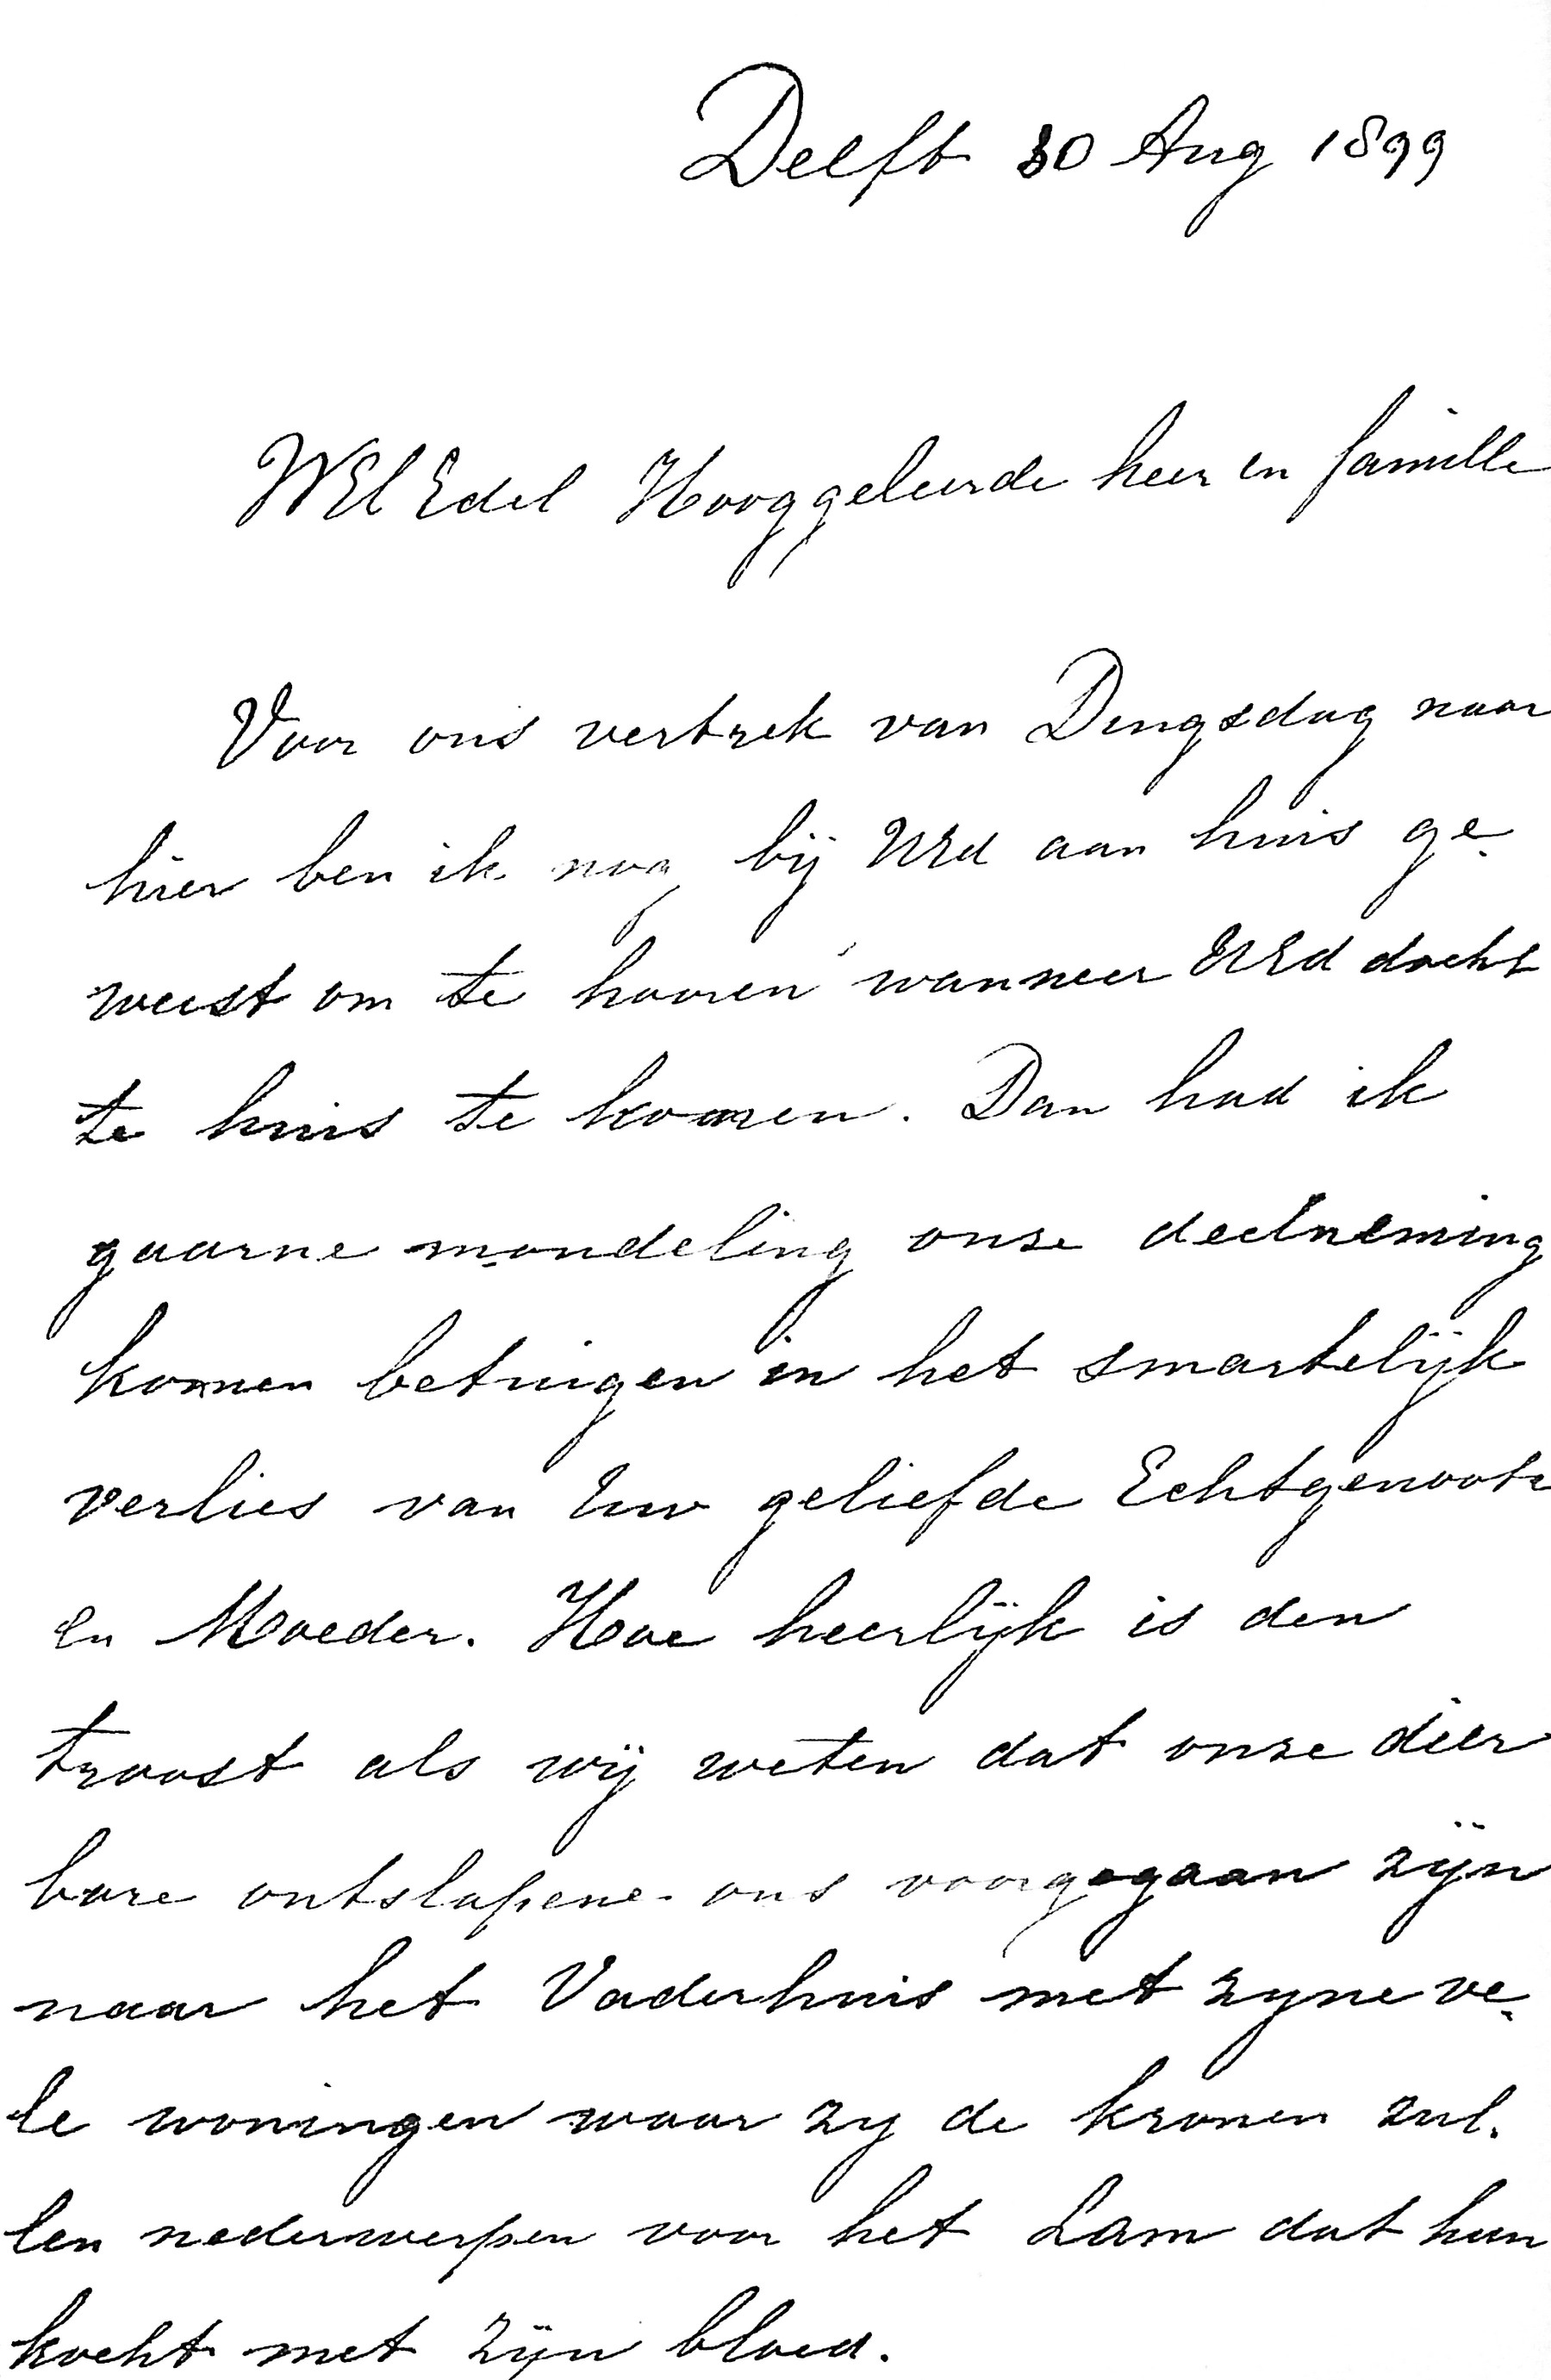 Delft 30 Aug 1899
WEl Edel Hooggeleerde heer en famille
Voor ons vertrek van Dingsdag naar
hier ben ik nog bij UEd aan huis ge-
weest om te hooren wanneer UEd dacht
te huis te komen. Dan had ik
gaarne mondeling onze deelneming
komen betuigen in het smartelijk
verlies van Uw geliefde Echtgenoote
en Moeder. Hoe heerlijk is den
troost als wij weten dat onze dier
bare ontslapene ons voorgegaan zijn
naar het Vaderhuis met zyne ve-
le woningen waar zy de kronen zul-
len nederwerpen voor het Lam dat hun
kocht met zijn bloed.